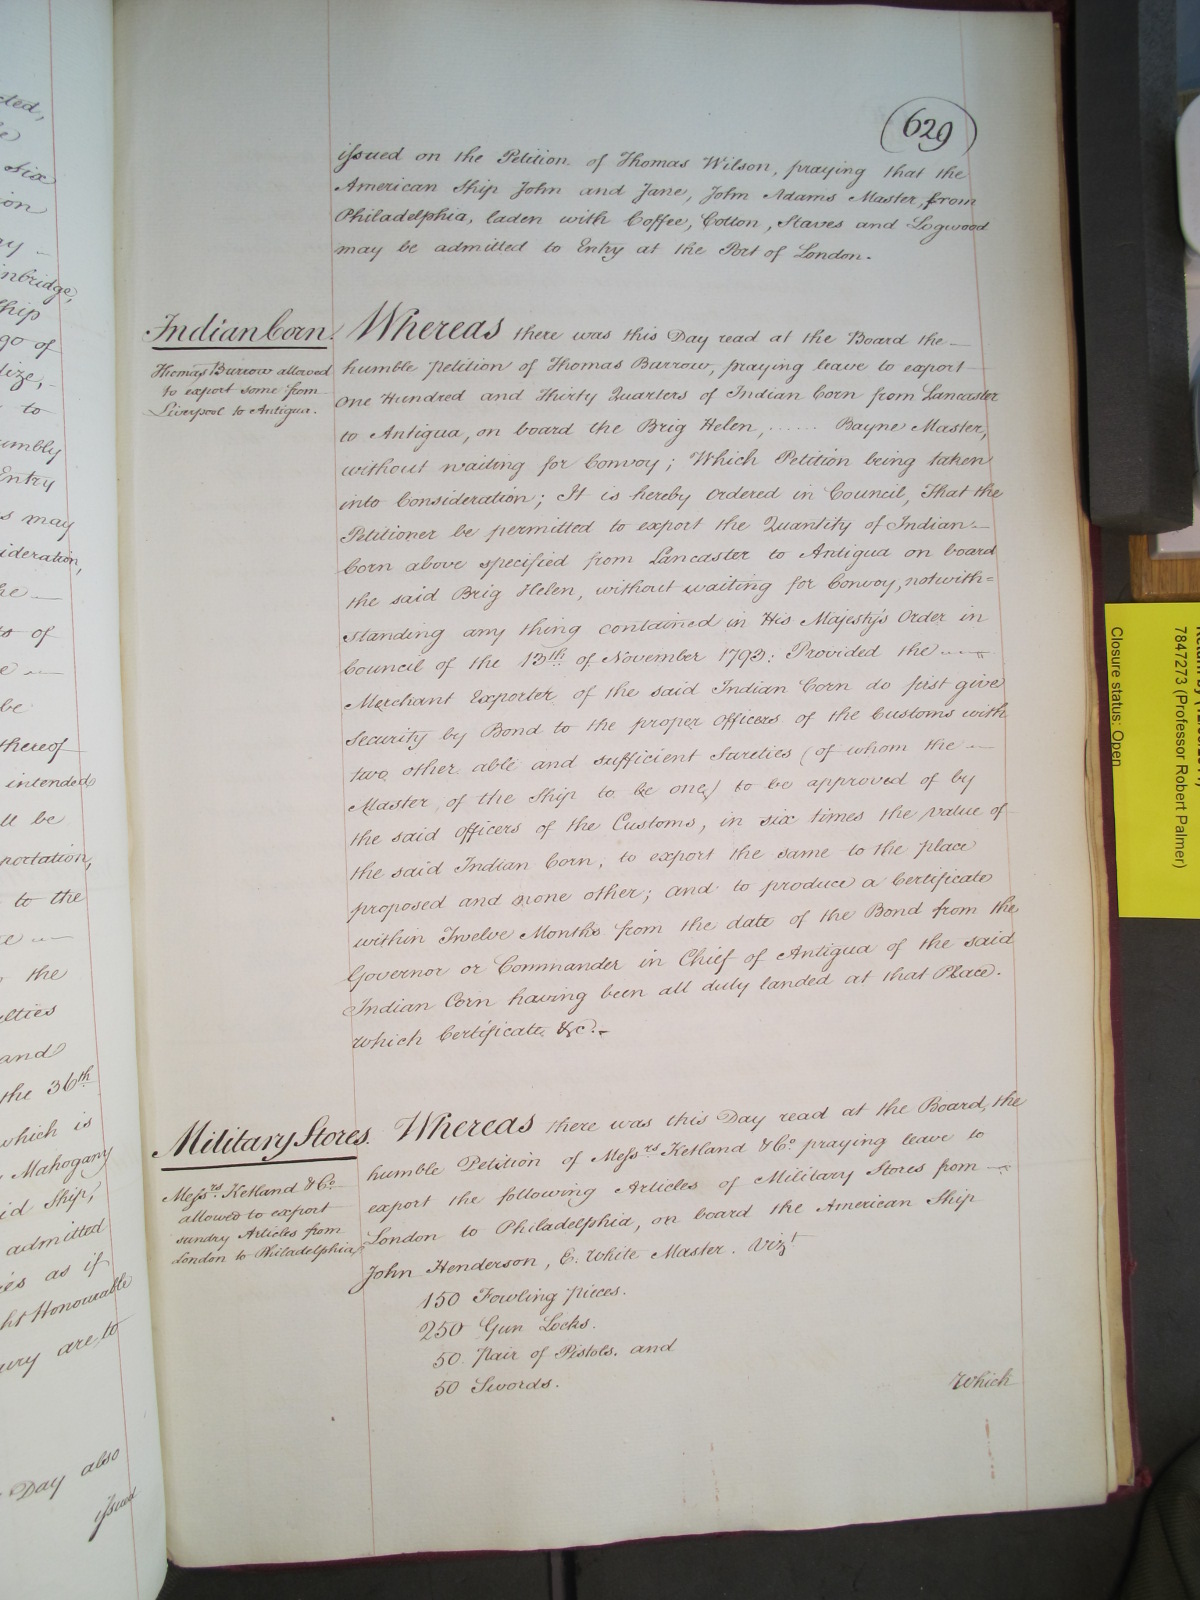 629
issued on the Petition of Thomas Wilson, praying that the
American Ship John and Jane, John Adams Master, from
Philadelphia, laden with Coffee, Cotton, Staves and Logwood
may be admitted to Entry at the Port of London.
Indian Corn.
Thomas Burrow allowed
to export some from
Liverpool to Antigua.
Whereas there was this Day read at the Board the
humble Petition of Thomas Burrow, praying leave to export
One Hundred and Thirty Quarters of Indian Corn from Lancaster
to Antigua, on board the Brig Helen, ...... Bayne Master,
without waiting for Convoy; Which Petition being taken
into Consideration; It is hereby Ordered in Council, That the
Petitioner be permitted to export the Quantity of Indian
Corn above specified from Lancaster to Antigua on board
the said Brig Helen, without waiting for Convoy, notwith=
standing any thing contained in His Majesty's Order in
Council of the 13th of November 1793: Provided the
Merchant Exporter of the said Indian Corn do first give
Security by Bond to the proper Officers of the Customs with
two other able and sufficient Sureties (of whom the
Master of the Ship to be one) to be approved of by
the said Officers of the Customs, in six times the value of
the said Indian Corn, to export the same to the place
proposed and none other; and to produce a Certificate
within Twelve Months from the date of the Bond from the
Governor or Commander in Chief of Antigua of the said
Indian Corn having been all duly landed at that Place.
Which Certificate &c.
Military Stores.
Messrs. Ketland & Co.
allowed to export
sundry Articles from
London to Philadelphia
Whereas there was this Day read at the Board, the
humble Petition of Messrs Ketland & Co praying leave to
export the following Articles of Military Stores from
London to Philadelphia, on board the American Ship
John Henderson, E. White Master. Vizt
150 Fowling Pieces.
250 Gun Locks.
50 Pair of Pistols. and
50 Swords.
Which
cted,
Six
ion
inbridge,
Ship
go of
to
umbly
Entry
s may
ideration,
he
ts of
be
thereof
intended
ll be
portation,
to the
the
lties
and
the 36th
which is
Mahogany
id Ship,
admitted
ies as if
ht Honourable
ury are to
Day also
issued
7847273 (Professor Robert Palmer)
Closure status: Open